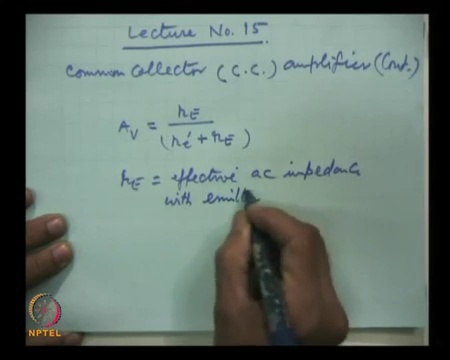 Lecture No. 15.
Common Collector (C.C.) amplifier (Cont.)
A_V = r_E / (r_e' + r_E)
r_E = effective ac impedance
with emit
NPTEL